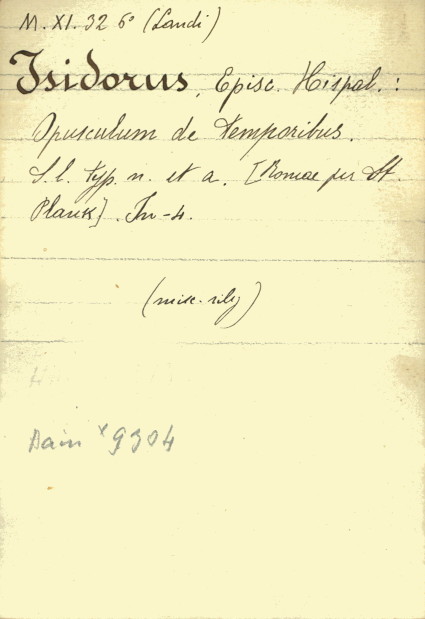 M. XI. 32 6º (Landi)
Isidorus, Episc. Hispal.:
Opusculum de temporibus.
S. l. typ. n. et a. [Romae per St.
Planck]. In-4.
(misc. rileg)
Hain *9304